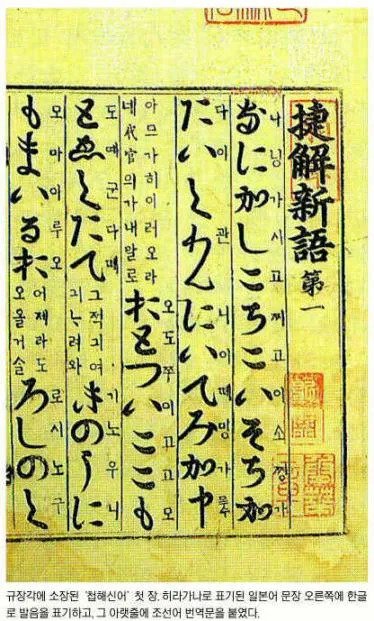 捷解新語 第一
나 닝가 시 고 찌 고 이 소 찡가
なに加しこちこいそち加
다이 관 니 이 뗴 밍가
たいくわんにいてみ加中
아므가히이러오라
네代官의가내말로
오도쭈이고고모
おとついここも
군다
그적긔여
기노우니
きのうに
모마이루오
もまいるお
어제라도
오올거슬
로시노구
ろしのく
규장각에 소장된 '첩해신어' 첫 장. 히라가나로 표기된 일본어 문장 오른쪽에 한글
로 발음을 표기하고, 그 아랫줄에 조선어 번역문을 붙였다.